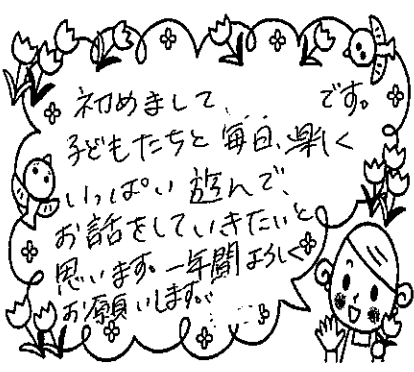 初めまして、　　です。
子どもたちと毎日、楽しく
いっぱい遊んで、
お話をしていきたいと
思います。一年間よろしく
お願いします。